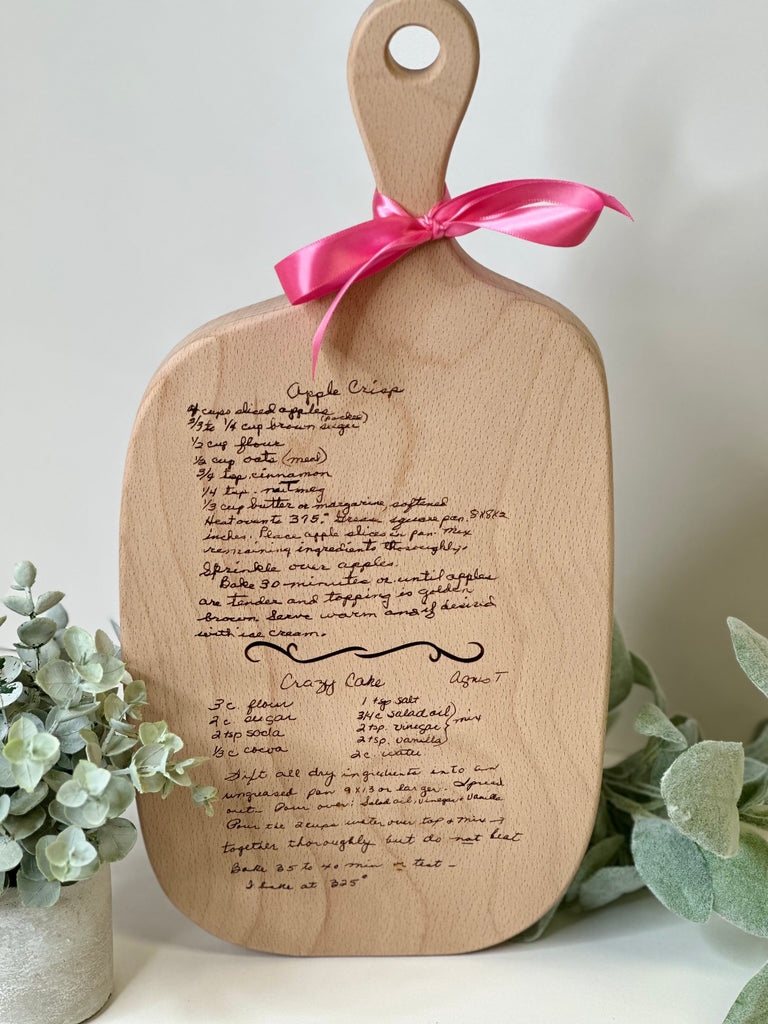 Apple Crisp
4 cups sliced apples
2/3 to 3/4 cup brown sugar (packed)
1/2 cup flour
1/2 cup oats (meal)
3/4 tsp. cinnamon
1/4 tsp. nutmeg
1/3 cup butter or margarine, softened
Heat oven to 375.° Grease square pan. 8x8x2
inches. Place apple slices in pan. Mix
remaining ingredients thoroughly.
Sprinkle over apples.
Bake 30 minutes or until apples
are tender and topping is golden
brown. Serve warm and if desired
with ice cream.
Crazy Cake Agnes T
3 c flour 1 tsp salt
2 c sugar 3/4 c salad oil
2 tsp soda 2 tsp. vinegar } mix
1/3 c cocoa 2 tsp. vanilla
2 c water
Sift all dry ingredients into an
ungreased pan 9x13 or larger. Spread
out - Pour over: Salad oil, vinegar + vanilla
Pour the 2 cups water over top + mix
together thoroughly but do not beat
Bake 35 to 40 min or test -
I bake at 325°